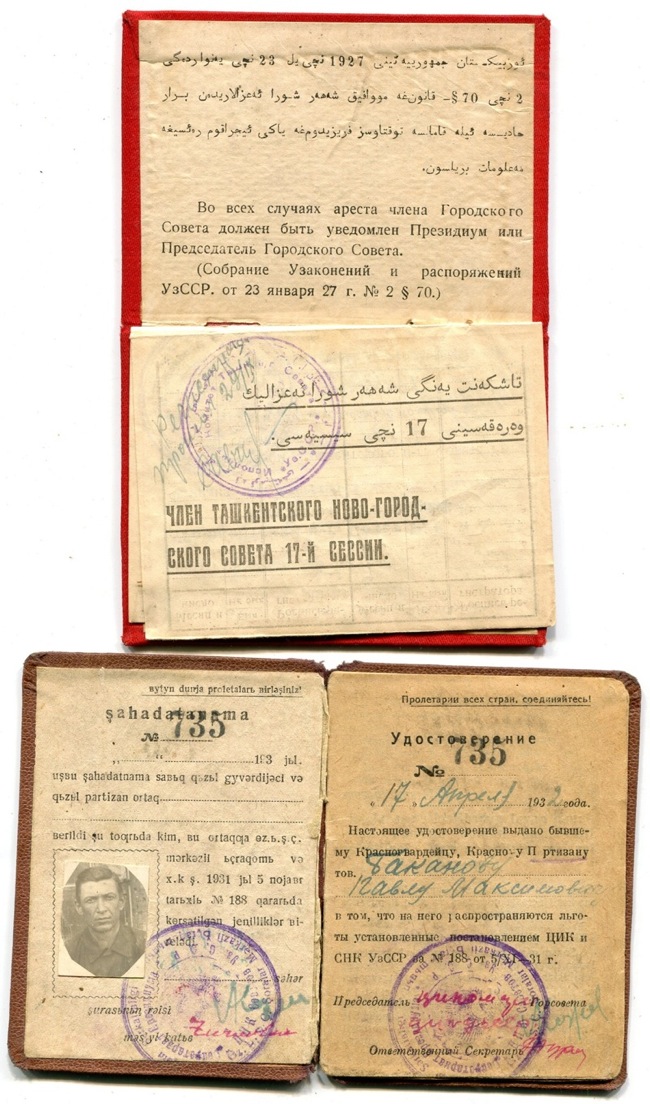 ئوزبېكـستان جمهورىيەتىنى 1927 نچى يىل 23 نچى يەنۋاردەكى
2 نچى 70 §- قانونغە مووافىق شەھەر شورا ئەعزالاريدەن بىرار
مەعلومات بريلسون.
Во всех случаях ареста члена Городского
Совета должен быть уведомлен Президиум или
Председатель Городского Совета.
(Собрание Узаконений и распоряжений
УзССР. от 23 января 27 г. № 2 § 70.)
تاشكەنت يەنگى شەھەر شورا ئەعزالىك
وەرەقەسينى 17 نچى سيسيەسى.
ЧЛЕН ТАШКЕНТСКОГО НОВО-ГОРОД-
СКОГО СОВЕТА 17-Й СЕССИИ.
вytyn dunja proletalarь вirləşiniz!
şahadatnama
№ 735
„ “ 193 jьl.
uşвu şahadatnama saвьq qьzьl gyvərdijəci və
qьzьl partizan ortaq
вerildi şu toqrьda kim, вu ortaqqa өz.ь.ş.ç.
mərkəzii вçraqomь və
x.k ş. 1931 jьl 5 nojaвr
tarьxlь № 188 qararьda
kөrsətilgən jenilliklər вi-
rələdi
şəhər
şurasьnьn rəisi
məs'yl katьв
Пролетарии всех стран, соединяйтесь!
Удостоверение
№ 735
„17“ Апреля 1932 года.
Настоящее удостоверение выдано бывше-
му Красногвардейцу, Красному Партизану
тов. Баканову
Павлу Максимович
в том, что на него распространяются льго-
ты установленные постановлением ЦИК и
СНК УзССР за № 188 от 5/XI—31 г.
Председатель Горсовета
Ответственный Секретарь